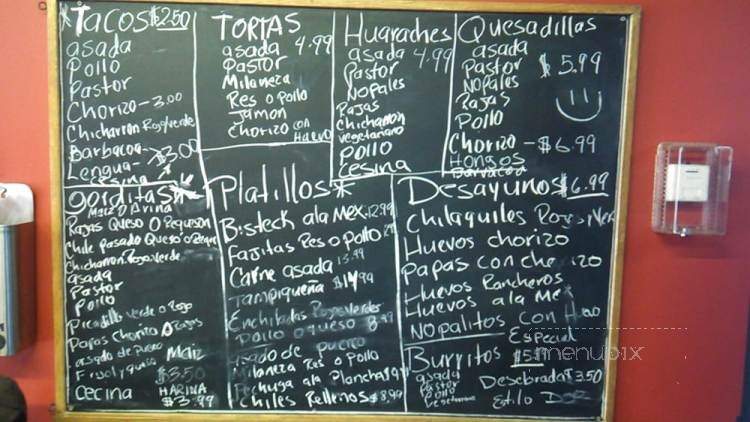 Tacos $2.50
asada
Pollo
Pastor
Chorizo - 3.00
Chicharron Rojo Verde
Barbacoa -
Lengua - $3.00
Cesina
TORTAS
asada 4.99
Pastor
Milaneza
Res o pollo
Jamon
Chorizo con
Huevo
Huaraches
asada 4.99
Pastor
Nopales
Rajas
Chicharron
vegetariano
Pollo
Cesina
Quesadillas
asada
Pastor $5.99
Nopales
Rajas
Pollo
Chorizo - $6.99
Hongos
Barbacoa
gorditas
Maiz O Arina
Rajas Queso O
Chile Pasado Queso o
Chicharron Rojo Verde
asada
Pastor
Pollo
Picadillo Verde o Rojo
Papas Chorizo O Rajas
asado de Puerco
Frijol y queso Maiz
$3.50
Cecina HARINA
$3.99
Platillos*
Bisteck ala Mex 12.99
Fajitas Res o Pollo
Carne asada 13.99
Tampiqueña $14.99
Enchiladas Rojas Verdes
Pollo o queso 8.99
Asado de Puerco
Milaneza Res o Pollo
Pechuga ala Plancha
Chiles Rellenos $8.99
Desayunos $6.99
Chilaquiles
Huevos chorizo
Papas con chorizo
Huevos Rancheros
Huevos ala Mex
Nopalitos con Huevo
Burritos
Especial
asada
Pastor
Pollo
vegetariano
Desebrada $3.50
Estilo
menupix